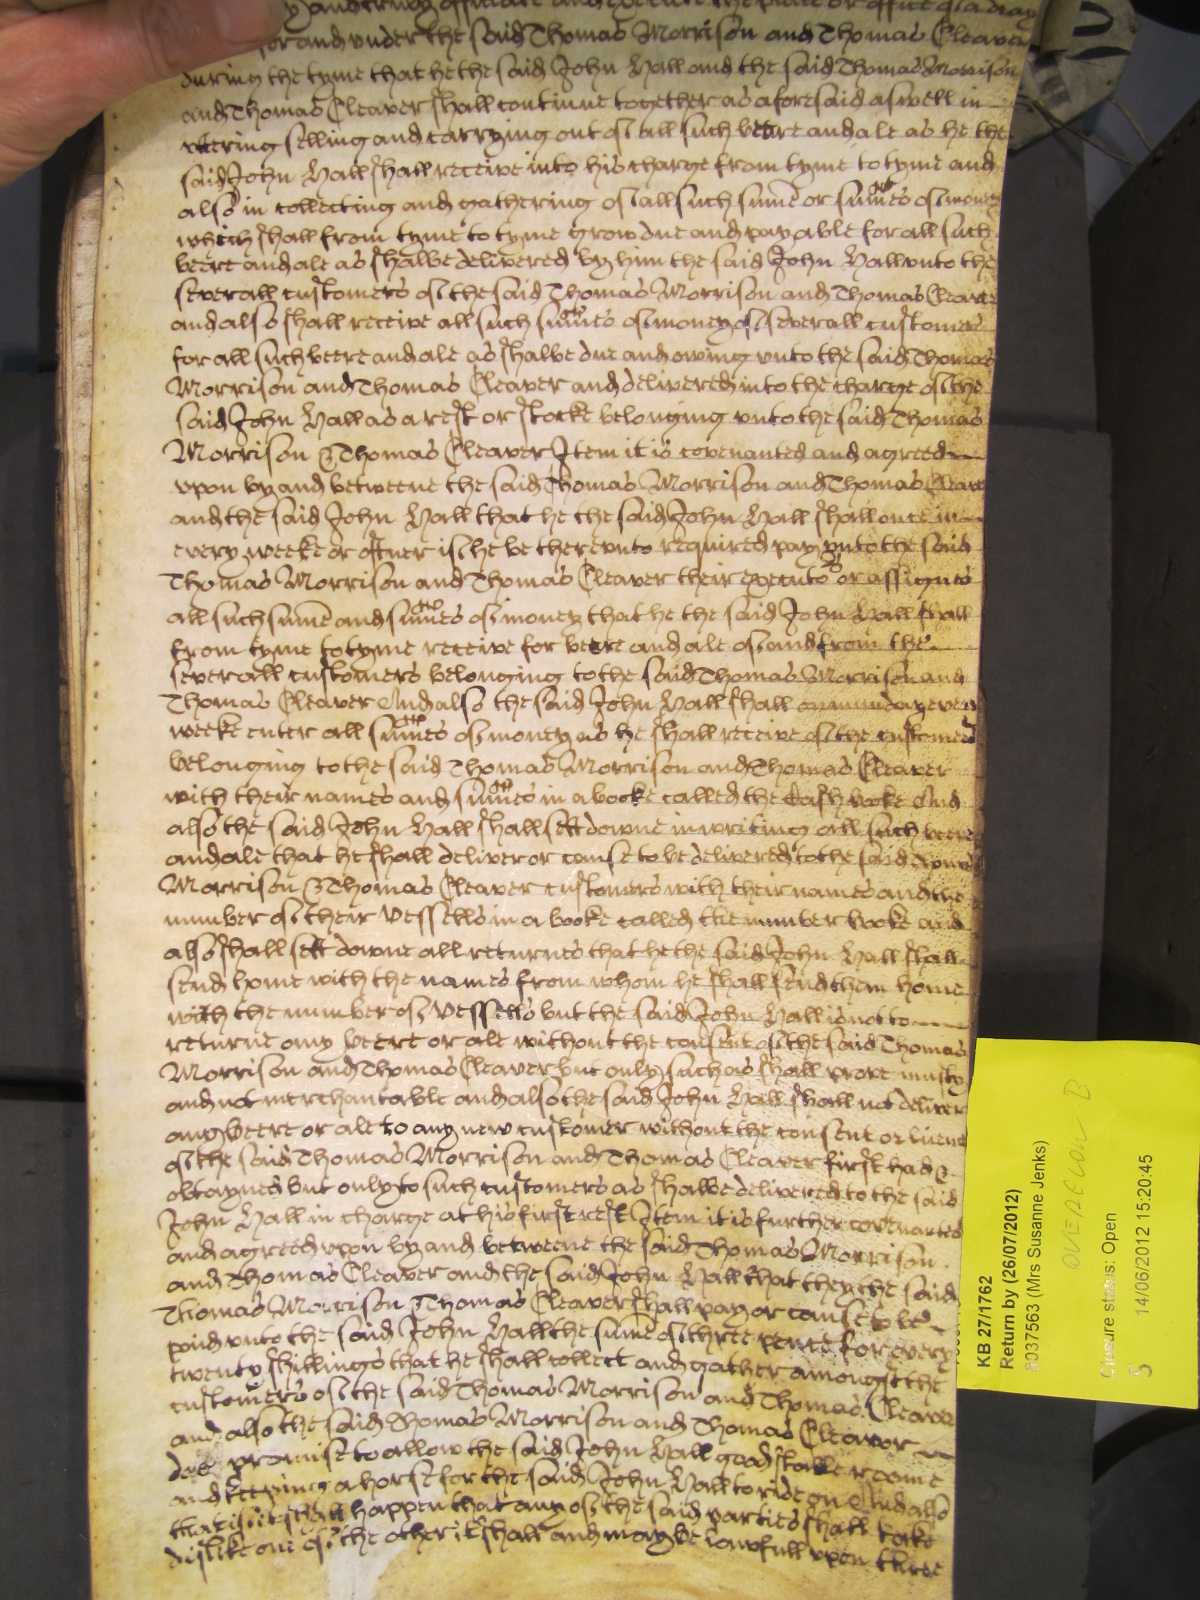 and under the said Thomas Morrison and Thomas Cleaver
during the tyme that he the said John Hall and the said Thomas Morrison
and Thomas Cleaver shall continue together as aforesaid aswell in
uttering selling and carrying out of all such beere and ale as he the
said John Hall shall receive into his charge from tyme to tyme and
also in collecting and gathering of all such sume or sumes of money
which shall from tyme to tyme grow due and payable for all such
beere and ale as shalbe delivered by him the said John Hall unto the
severall customers of the said Thomas Morrison and Thomas Cleaver
and also shall receive all such sumes of money of severall customers
for all such beere and ale as shalbe due and owing unto the said Thomas
Morrison and Thomas Cleaver and delivered into the charge of the
said John Hall as a rest or stocke belonging unto the said Thomas
Morrison & Thomas Cleaver Item it is covenanted and agreed
upon by and betweene the said Thomas Morrison and Thomas Cleaver
and the said John Hall that he the said John Hall shall once in
every weeke or oftner if he be thereunto required pay unto the said
Thomas Morrison and Thomas Cleaver their executors or assignes
all such sume and sumes of money that he the said John Hall shall
from tyme to tyme receive for beere and ale of and from the
severall customers belonging to the said Thomas Morrison and
Thomas Cleaver And also the said John Hall shall on munday every
weeke enter all sumes of money as he shall receive of the customers
belonging to the said Thomas Morrison and Thomas Cleaver
with their names and sumes in a booke called the Cash booke And
also the said John Hall shall sett downe in writing all such beere
and ale that he shall deliver or cause to be delivered to the said Thomas
Morrison & Thomas Cleaver customers with their names and the
number of their vessells in a booke called the number booke and
also shall sett downe all returnes that he the said John Hall shall
send home with the names from whom he shall send them home
with the number of vessells but the said John Hall is not to
returne any beere or ale without the consent of the said Thomas
Morrison and Thomas Cleaver but only such as shall prove musty
and not merchantable and also the said John Hall shall not deliver
any beere or ale to any new customer without the consent or
of the said Thomas Morrison and Thomas Cleaver first had &
obtayned but only to such customers as shalbe delivered to the said
John Hall in charge at his first rest Item it is further covenanted
and agreed upon by and betweene the said Thomas Morrison
and Thomas Cleaver and the said John Hall that they the said
Thomas Morrison Thomas Cleaver shall pay or cause to be
paid unto the said John Hall the sume of three pence for every
twenty shillings that he shall collect and gather amongst the
customers of the said Thomas Morrison and Thomas Cleaver
and also the said Thomas Morrison and Thomas Cleavor
doe promise to allow the said John Hall good stable roome
and keeping a horse for the said John Hall to ride on And also
that if it shall happen that any of the said parties shall take
dislike one of the other it shall and may be lawfull upon three
KB 27/1762
Return by (26/07/2012)
8037563 (Mrs Susanne Jenks)
Closure status: Open
14/06/2012 15:20:45